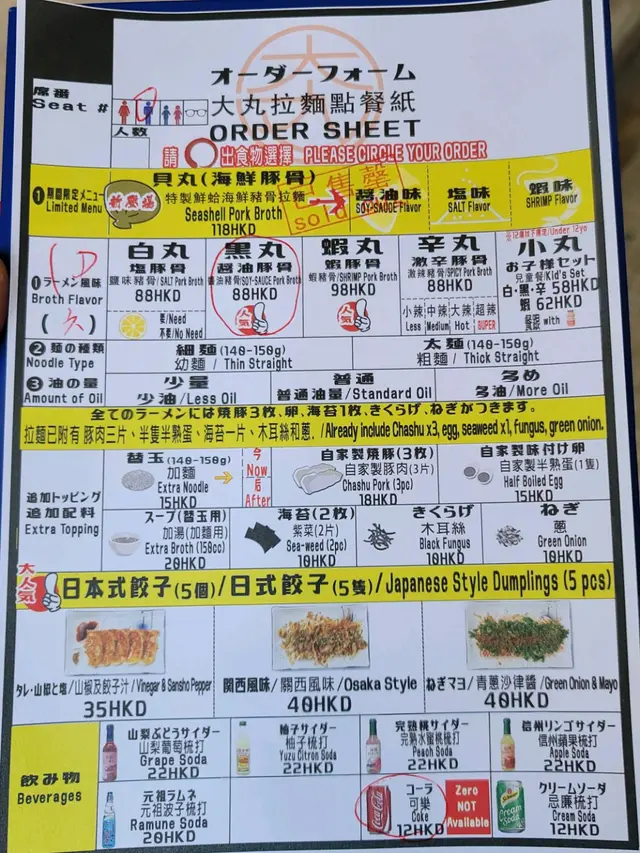 オーダーフォーム
大丸拉麵點餐紙
ORDER SHEET
席番
Seat #
人数
請 出食物選擇 PLEASE CIRCLE YOUR ORDER
①期間限定メニュー
Limited Menu
新蘑菇
貝丸(海鮮豚骨)
特製鮮蛤海鮮豬骨拉麵
Seashell Pork Broth
118HKD
已售罄
sold
醤油味
SOY-SAUCE Flavor
塩味
SALT Flavor
蝦味
SHRIMP Flavor
①ラーメン風味
Broth Flavor
白丸
塩豚骨
鹽味豬骨/SALT Pork Broth
88HKD
要/Need
不要/No Need
黒丸
醤油豚骨
醬油豬骨/SOY-SAUCE Pork Broth
88HKD
人気
蝦丸
蝦豚骨
蝦豬骨/SHRIMP Pork Broth
98HKD
人気
辛丸
激辛豚骨
激辣豬骨/SPICY Pork Broth
88HKD
小辣 中辣 大辣 超辣
Less Medium Hot SUPER
※12歲以下限定/Under 12yo
小丸
お子様セット
兒童餐/Kid's Set
白・黒・辛 58HKD
蝦 62HKD
餐跟 with
②麺の種類
Noodle Type
細麺 (140-150g)
幼麵 / Thin Straight
太麺 (140-150g)
粗麵 / Thick Straight
③油の量
Amount of Oil
少量
少油/Less Oil
普通
普通油量/Standard Oil
多め
多油/More Oil
全てのラーメンには焼豚3枚、卵、海苔1枚、きくらげ、ねぎがつきます。
拉麵已附有 豚肉三片、半隻半熟蛋、海苔一片、木耳絲和蔥. /Already include Chashu x3, egg, seaweed x1, fungus, green onion.
追加トッピング
追加配料
Extra Topping
替玉 (140-150g)
加麵
Extra Noodle
15HKD
今
Now
后
After
自家製焼豚(3枚)
自家製豚肉(3片)
Chashu Pork (3pc)
18HKD
自家製味付け卵
自家製半熟蛋(1隻)
Half Boiled Egg
15HKD
スープ(替玉用)
加湯(加麵用)
Extra Broth (150cc)
20HKD
海苔(2枚)
紫菜(2片)
Sea-weed (2pc)
10HKD
きくらげ
木耳絲
Black Fungus
10HKD
ねぎ
蔥
Green Onion
10HKD
大人気
日本式餃子(5個)/日式餃子(5隻)/Japanese Style Dumplings (5 pcs)
タレ・山椒と塩/山椒及餃子汁/Vinegar & Sansho Pepper
35HKD
関西風味/關西風味/Osaka Style
40HKD
ねぎマヨ/青蔥沙律醬/Green Onion & Mayo
40HKD
飲み物
Beverages
山梨ぶどうサイダー
山梨葡萄梳打
Grape Soda
22HKD
柚子サイダー
柚子梳打
Yuzu Citron Soda
22HKD
完熟桃サイダー
完熟水蜜桃梳打
Peach Soda
22HKD
信州リンゴサイダー
信州蘋果梳打
Apple Soda
22HKD
元祖ラムネ
元祖波子梳打
Ramune Soda
20HKD
コーラ
可樂
Coke
12HKD
Zero
NOT
Available
クリームソーダ
忌廉梳打
Cream Soda
12HKD